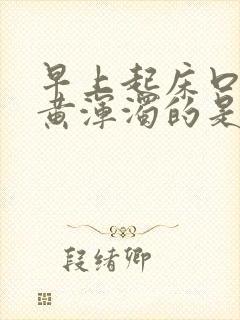 早上起床口
黄浑浊的是
段绪卿